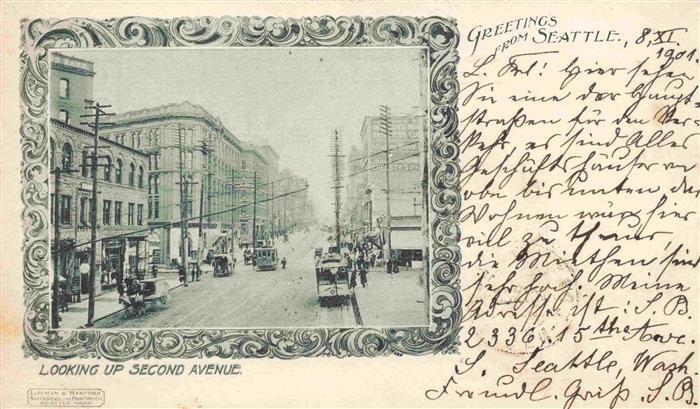 GREETINGS
FROM SEATTLE.
, 8, XI.
1901.
L. Frl.! Hier sehen
Sie eine der Haupt-
straßen für den Ver-
kehr, es sind Alles
Geschäftshäuser von
oben bis unten, das
Wohnen wäre hier
viel zu theuer,
die Miethen sind
sehr hoch. Meine
Adresse ist: S. B.
2336. 15th Ave.
S. Seattle, Wash.
Freundl. Gruß. S.B.
LOOKING UP SECOND AVENUE.
LOWMAN & HANFORD
STATIONERY AND PRINTING CO.
SEATTLE, WASH.